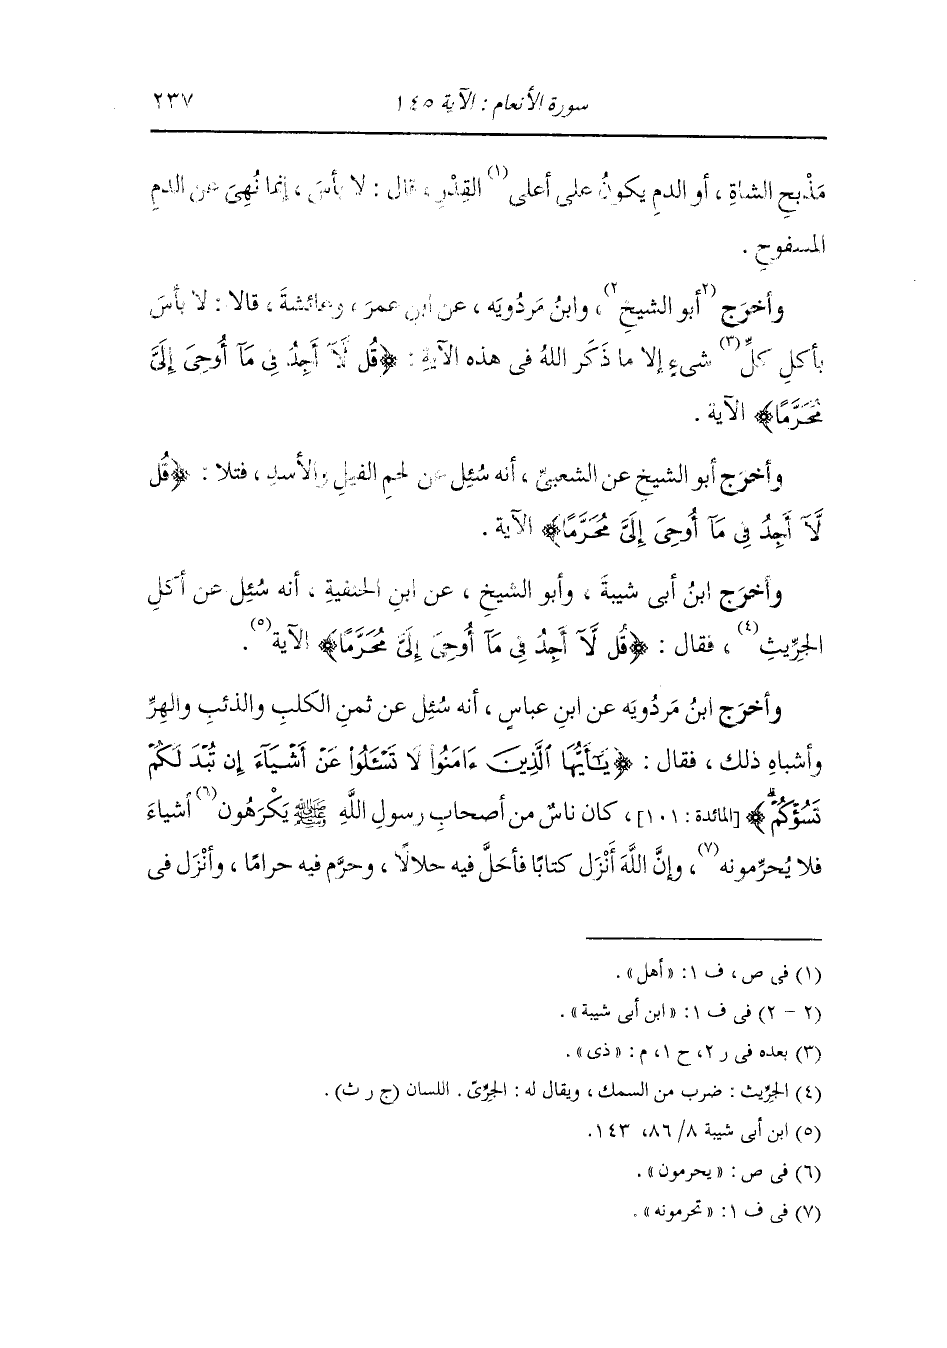 سورة الأنعام : الآية ١٤٥ ٢٣٧
مَذْبحِ الشاةِ ، أو الدمِ يكونُ على أعلى(١) القِدْرِ ، قال : لا بأسَ ، إنما نُهِىَ عن الدمِ
المسفوحِ .
وأخرَج (٢أبو الشيخِ٢) ، وابنُ مَردُويَه ، عن ابنِ عمرَ ، وعائشةَ ، قالا : لا بأسَ
بأكلِ كلِّ(٣) شىءٍ إلا ما ذَكَر اللهُ فى هذه الآيةِ : ﴿قُل لَّآ أَجِدُ فِى مَآ أُوحِىَ إِلَىَّ
مُحَرَّمًا﴾ الآية .
وأخرَج أبو الشيخِ عن الشعبىِّ ، أنه سُئِل عن لحمِ الفيلِ والأسدِ ، فتلا : ﴿قُل
لَّآ أَجِدُ فِى مَآ أُوحِىَ إِلَىَّ مُحَرَّمًا﴾ الآية .
وأخرَج ابنُ أبى شيبةَ ، وأبو الشيخِ ، عن ابنِ الحنفيةِ ، أنه سُئِل عن أكلِ
الجِرِّيثِ(٤) ، فقال : ﴿قُل لَّآ أَجِدُ فِى مَآ أُوحِىَ إِلَىَّ مُحَرَّمًا﴾ الآية(٥) .
وأخرَج ابنُ مَردُويَه عن ابنِ عباسٍ ، أنه سُئِل عن ثمنِ الكلبِ والذئبِ والهِرِّ
وأشباهِ ذلك ، فقال : ﴿يَٰٓأَيُّهَا ٱلَّذِينَ ءَامَنُوا۟ لَا تَسْـَٔلُوا۟ عَنْ أَشْيَآءَ إِن تُبْدَ لَكُمْ
تَسُؤْكُمْ ۖ﴾ [المائدة : ١٠١] ، كان ناسٌ من أصحابِ رسولِ اللَّهِ ﷺ يَكْرَهُون(٦) أشياءَ
فلا يُحرِّمونه(٧) ، وإنَّ اللَّهَ أَنْزَل كتابًا فأحَلَّ فيه حلالًا ، وحرَّم فيه حرامًا ، وأنْزَل فى
(١) فى ص ، ف ١ : « أهل » .
(٢ - ٢) فى ف ١ : « ابن أبى شيبة » .
(٣) بعده فى ر ٢ ، ح ١ ، م : « ذى » .
(٤) الجِرِّيث : ضرب من السمك ، ويقال له : الجِرِّىّ . اللسان (ج ر ث) .
(٥) ابن أبى شيبة ٨/ ٨٦، ١٤٣.
(٦) فى ص : « يحرمون » .
(٧) فى ف ١ : « تحرمونه » .